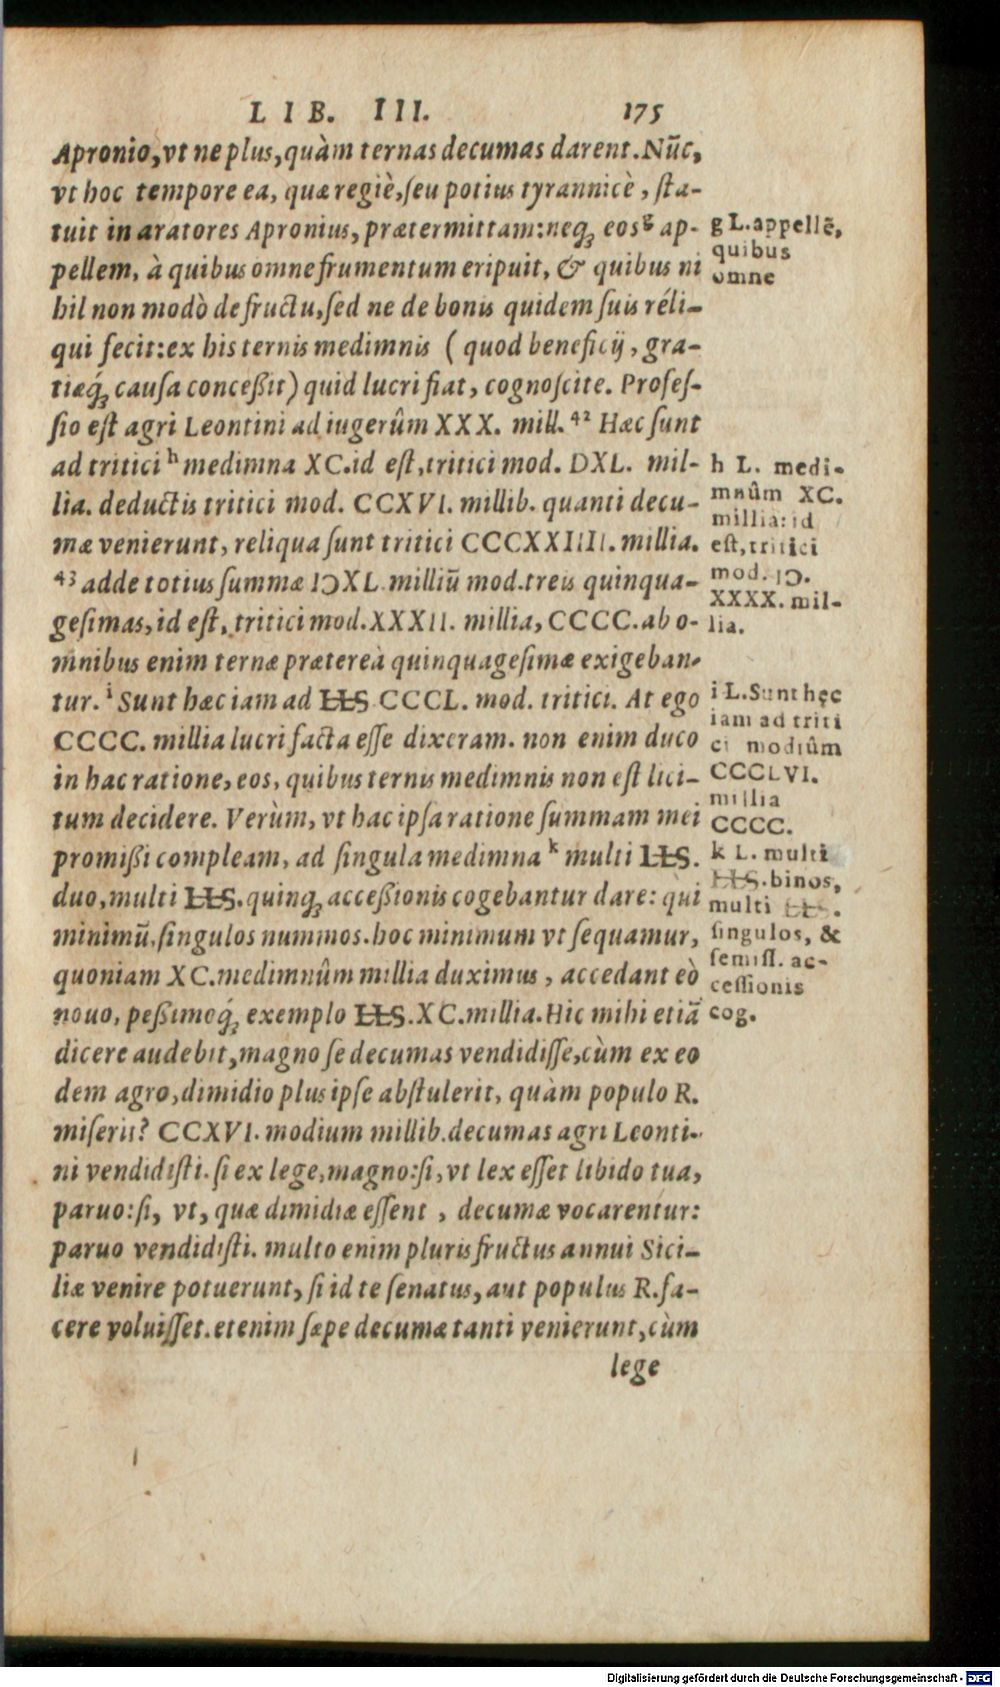 LIB. III. 175
Apronio, vt ne plus, quàm ternas decumas darent. Nūc,
vt hoc tempore ea, quæ regiè, ſeu potius tyrannicè, ſta-
tuit in aratores Apronius, prætermittam: neq́ꝫ eos ᵍ ap-
pellem, à quibus omne frumentum eripuit, & quibus ni
hil non modò de fructu, ſed ne de bonis quidem ſuis réli-
qui fecit: ex his ternis medimnis ( quod beneficij, gra-
tiæq́ꝫ cauſa conceßit) quid lucri fiat, cognoſcite. Profeſ-
ſio eſt agri Leontini ad iugerûm XXX. mill. ⁴² Hæc ſunt
ad tritici ʰ medimna XC. id eſt, tritici mod. DXL. mil-
lia. deductis tritici mod. CCXVI. millib. quanti decu-
mæ venierunt, reliqua ſunt tritici CCCXXIIII. millia.
⁴³ adde totius ſummæ IↃXL. milliū mod. treis quinqua-
geſimas, id eſt, tritici mod. XXXII. millia, CCCC. ab o-
mnibus enim ternæ prætereà quinquageſimæ exigeban-
tur. ⁱ Sunt hæc iam ad LLS CCCL. mod. tritici. At ego
CCCC. millia lucri facta eſſe dixeram. non enim duco
in hac ratione, eos, quibus ternis medimnis non eſt lici-
tum decidere. Verùm, vt hac ipſa ratione ſummam mei
promißi compleam, ad ſingula medimna ᵏ multi LLS.
duo, multi LLS. quinqꝫ acceßionis cogebantur dare: qùi
minimū, ſingulos nummos. hoc minimum vt ſequamur,
quoniam XC. medimnûm millia duximus, accedant eò
nouo, peßimoq́ꝫ exemplo LLS. XC. millia. Hic mihi etiā
dicere audebit, magno ſe decumas vendidiſſe, cùm ex eo
dem agro, dimidio plus ipſe abſtulerit, quàm populo R.
miſerit? CCXVI. modium millib. decumas agri Leonti-
ni vendidiſti. ſi ex lege, magno: ſi, vt lex eſſet libido tua,
paruo: ſi, vt, quæ dimidiæ eſſent, decumæ vocarentur:
paruo vendidiſti. multo enim pluris fructus annui Sici-
liæ venire potuerunt, ſi id te ſenatus, aut populus R. fa-
cere voluiſſet. etenim ſæpe decumæ tanti venierunt, cùm
lege
g L. appellē,
quibus
omne
h L. medi-
mnûm XC.
millia: id
eſt, tritici
mod. IↃ.
XXXX. mil-
lia.
i L. Sunt hęc
iam ad triti
ci modiûm
CCCLVI.
millia
CCCC.
k L. multi
LLS. binos,
multi LLS.
ſingulos, &
ſemiſſ. ac-
ceſſionis
cog.
Digitalisierung gefördert durch die Deutsche Forschungsgemeinschaft - DFG